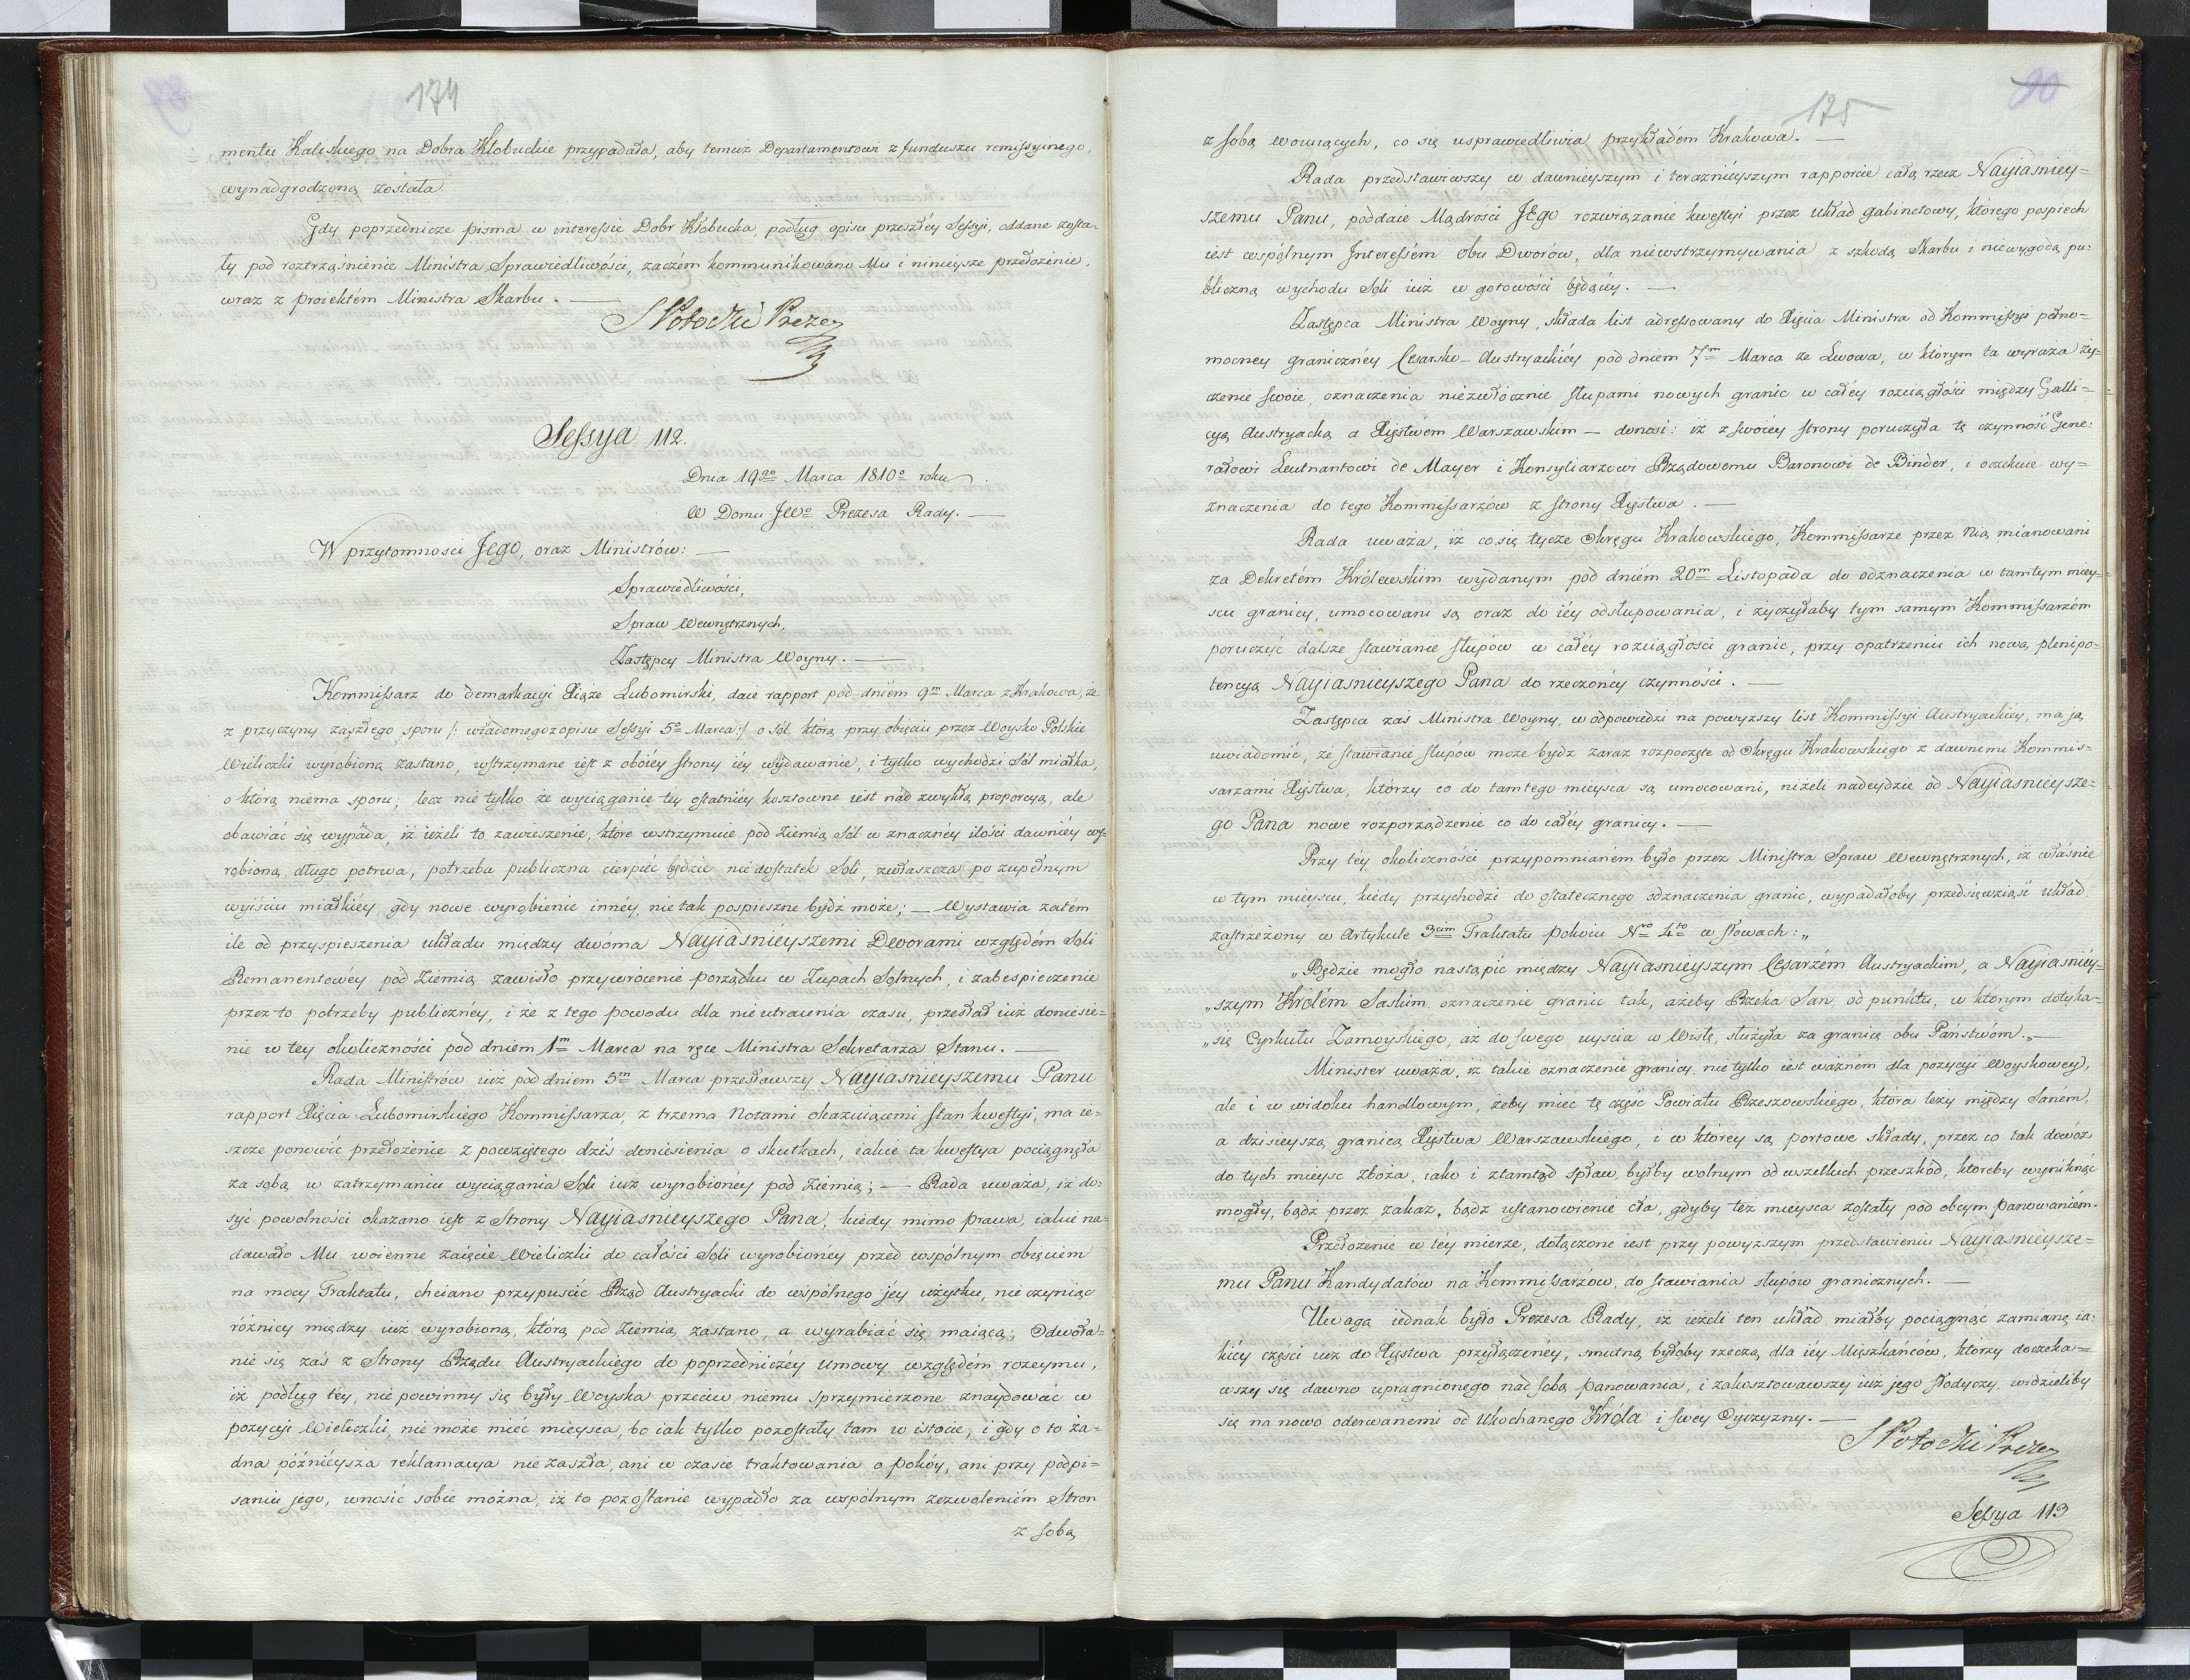 174
mentu Kaliskiego na Dobra Kłobuckie przypadała, aby temuż Departamentowi z funduszu remissyinego,
wynadgrodzoną została.
Gdy poprzednicze pisma w interessie Dobr Kłobucka, podług opisu przeszłey Sessyi, oddane zosta-
ły pod roztrząśnienie Ministra Sprawiedliwości, zaczém kommunikowano Mu i ninieysze przełożenie,
wraz z proiektém Ministra Skarbu. —
S Potocki Prezes
Sessya 112.
Dnia 19go Marca 1810o roku.
W Domu JWo Prezesa Rady. —
W przytomności Jego, oraz Ministrów: —
Sprawiedliwości,
Spraw Wewnętrznych,
Zastępcy Ministra Woyny. —
Kommissarz do demarkacyi Xiąże Lubomirski, daie rapport pod dniém 9m Marca z Krakowa, że
z przyczyny zaszłego sporu /: wiadomego z opisu Sessyi 5o Marca :/ o sól, którą przy obięciu przez Woysko Polskie
Wieliczki wyrobioną zastano, wstrzymane iest z obóiéy strony iéy wydawanie, i tylko wychodzi Sól miałka,
o którą niema sporu; lecz nie tylko że wyciąganie tey ostatniéy kosztowne iest nad zwykłą proporcyą, ale
obawiać się wypada, iż ieżeli to zawieszenie, które wstrzymuie pod Ziemią Sól w znacznéy ilości dawniéy wy-
robioną, długo potrwa, potrzeba publiczna cierpieć będzie niedostatek Soli, zwłaszcza po zupełnym
wyiściu miałkiéy, gdy nowe wyrobienie innéy nie tak pospieszne bydź może; — Wystawia zatém
ile od przyspieszenia układu między dwóma Nayiaśnieyszemi Dworami względém Soli
Remanentowéy pod Ziemią zawisło przywrócenie porządku w Żupach Solnych, i zabespieczenie
przez to potrzeby publicznéy, i że z tego powodu dla nieutracenia czasu, przesłał iuż doniesie=
nie w tey okoliczności pod dniem 1m Marca na ręce Ministra Sekretarza Stanu. —
Rada Ministrów iuż pod dniem 5m Marca przesławszy Nayiaśnieyszemu Panu
rapport Xięcia Lubomirskiego Kommissarza, z trzema Notami okazuiącemi stan kwestyi, ma ie-
szcze ponowić przełożenie z powziętego dziś doniesienia o skutkach, iakie ta kwestya pociągnęła
za sobą w zatrzymaniu wyciągania Soli iuż wyrobionéy pod Ziemią; — Rada uważa, iż do-
syć powolności okazano iest z Strony Nayiaśnieyszego Pana, kiedy mimo prawa, iakie na=
dawało Mu woienne zaięcie Wieliczki do całości Soli wyrobionéy przed wspólnym obięciem
na mocy Traktatu, chciano przypuścić Rząd Austryacki do wspólnego jéy użytku, nie czyniąc
różnicy między iuż wyrobioną, którą pod Ziemią zastano, a wyrabiać się maiącą; Odwoła=
nie się zaś z Strony Rządu Austryackiego do poprzedniczéy umowy względém rozeymu,
iż podług téy, nie powinny się były Woyska przeciw niemu sprzymierzone znaydować w
pozycyi Wieliczki, nie może mieć mieysca, bo iak tylko pozostały tam w istocie, i gdy o to ża=
dna późnieysza reklamacya niezaszła, ani w czasie traktowania o pokóy, ani przy podpi=
saniu jego, wnosić sobie można, iż to pozostanie wypadło za wspólnym zezwoleniém Stron
z sobą
125
90
z sobą woiuiących, co się usprawiedliwia przykładem Krakowa. —
Rada przedstawiwszy w dawnieyszym i teraźnieyszym rapporcie całą rzecz Nayiaśniey=
szemu Panu, poddaie Mądrości JEgo rozwiązanie kwestyi przez układ gabinetowy, którego pospiech
iest wspólnym Interessém obu Dworów, dla niewstrzymywania z szkodą Skarbu i niewygodą pu:
bliczną wychodu Soli iuż w gotowości będącéy. —
Zastępca Ministra Woyny, składa list adressowany do Xięcia Ministra od Kommissyi pełno=
mocney granicznéy Cesarsko-Austryackiéy pod dniem 7m Marca ze Lwowa, w którym ta wyraża ży=
czenie swoie, oznaczenia niezwłocznie słupami nowych granic w całéy rozciągłości między Galli=
cyą Austryacką a Xięstwém Warszawskim — donosi: iż z swoiéy strony poruczyła tę czynność Gene:
rałowi Leutnantowi de Mayer i Konsyliarzowi Rządowemu Baronowi de Binder, i oczekuie wy=
znaczenia do tego Kommissarzów z strony Xięstwa. —
Rada uważa, iż co się tycze Okręgu Krakowskiego, Kommissarze przez Nią mianowani
za Dekretém Królewskim wydanym pod dniém 20m Listopada do odznaczenia w tamtym miey=
scu granicy, umocowani są oraz do iéy odsłupowania, i życzyłaby tym samym Kommissarzóm
poruczyć dalsze stawianie słupów w całéy rozciągłości granic, przy opatrzeniu ich nową plenipo=
tencyą Nayiaśnieyszego Pana do rzeczonéy czynności. —
Zastępca zaś Ministra Woyny, w odpowiedzi na powyższy list Kommissyi Austryackiéy, ma ją
uwiadomić, że stawianie słupów może bydź zaraz rozpoczęte od Okręgu Krakowskiego z dawnemi Kommis=
sarzami Xięstwa, którzy co do tamtego mieysca są umocowani, niżeli nadeydzie od Nayiaśnieysze=
go Pana nowe rozporządzenie co do całéy granicy. —
Przy téy okoliczności przypomnianém było przez Ministra Spraw Wewnętrznych, iż właśnie
w tym mieyscu, kiedy przychodzi do ostatecznego odznaczenia granic, wypadałoby przedsięwziąść układ
zastrzeżony w Artykule 3cim Traktatu pokoiu Nro 4to w słowach: „
„Będzie mogło nastąpić między Nayiaśnieyszym Cesarzém Austryackim, a Nayiaśniéy=
„szym Królém Saskim oznaczenie granic tak, ażeby Rzeka San, od punktu, w którym dotyka=
„się Cyrkułu Zamoyskiego, aż do swego uyscia w Wisłę, służyła za granicę obu Państwóm.„—
Minister uważa, iż takie oznaczenie granicy nie tylko iest ważném dla pozycyi Woyskowey,
ale i w widoku handlowym, żeby mieć tę część Powiatu Rzeszowskiego, która leży między Saném,
a dzisieyszą granicą Xięstwa Warszawskiego, i w którey są portowe składy, przez co tak dowóz
do tych mieysc zboża, iako i ztamtąd spław, byłby wolnym od wszelkich przeszkód, któreby wyniknąć
mogły, bądź przez zakaz, bądz ustanowienie cła, gdyby też mieysca zostały pod obcym panowaniém.
Przełożenie w téy mierze, dołączone iest przy powyższym przedstawieniu Nayiaśnieysze=
mu Panu Kandydatów na Kommissarzów, do stawiania słupów granicznych. —
Uwagą iednak było Prezesa Rady, iż ieżeli ten układ miałby pociągnąć zamianę ia:
kiéy części iuż do Xięstwa przyłączonéy, smutną byłoby rzeczą dla iéy Mięszkańców, którzy doczeka=
wszy się dawno upragnionego nad sobą panowania, i zakosztowawszy iuż jego słodyczy, widzieliby
się na nowo oderwanemi od Ukochanego Króla i swey Oyczyzny. —
S Potocki Prezes
Sessya 113